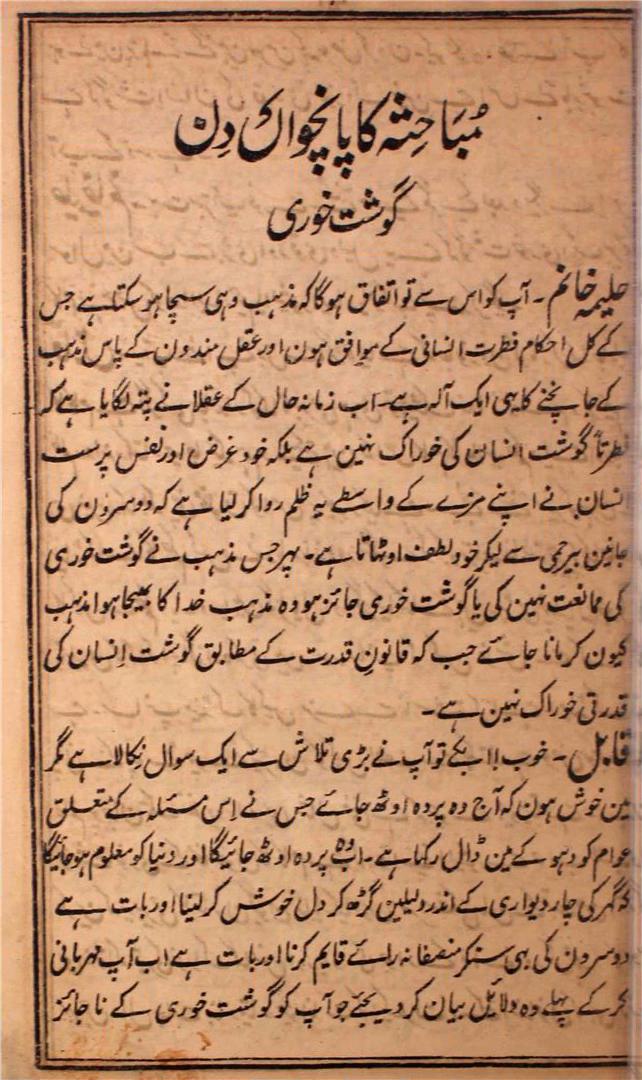 مُبَاحِثہ کا پانچواں دِن
گوشت خوری
حلیمہ خانم ۔ آپ کو اس سے تو اتفاق ہوگا کہ مذہب وہی سچا ہو سکتا ہے جس
کے کل احکام فطرت انسانی کے موافق ہون اور عقل مندون کے پاس مذہب
کے جانچنے کا یہی ایک آلہ ہے۔ اب زمانہ حال کے عقلا نے پتہ لگایا ہے کہ
فطرتاً گوشت انسان کی خوراک نہین ہے بلکہ خود غرض اور نفس پرست
انسان نے اپنے مزے کے واسطے یہ ظلم روا کر لیا ہے کہ دوسرون کی
جانین بیرحمی سے لیکر خود لطف اوٹھاتا ہے۔ پہر جس مذہب نے گوشت خوری
کی ممانعت نہین کی یا گوشت خوری جائز ہو وہ مذہب خدا کا بھیجا ہوا مذہب
کیون کر مانا جائے جب کہ قانونِ قدرت کے مطابق گوشت اِنسان کی
قدرتی خوراک نہین ہے۔
قابل ۔ خوب! ابکے تو آپ نے بڑی تلاش سے ایک سوال نِکالا ہے مگر
مین خوش ہون کہ آج وہ پردہ اوٹھ جائے جس نے اِس مسئلہ کے متعلق
عوام کو دہوکے مین ڈال رکہا ہے۔ اب وہ پردہ اوٹھ جائیگا اور دنیا کو معلوم ہو جائیگا
کہ گہر کی چار دیواری کے اندر دلیلین گڑھ کر دل خوش کر لینا اور بات ہے
دوسرون کی بہی سنکر منصفانہ رائے قایم کرنا اور بات ہے اب آپ مہربانی
کر کے پہلے وہ دلائل بیان کر دیجئے جو آپ کو گوشت خوری کے ناجائز